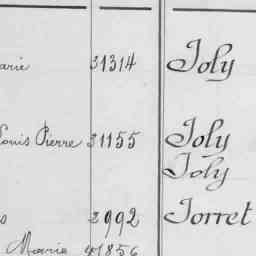 arie 31314 Joly
Louis Pierre 31155 Joly
Joly
s 2992 Jorret
Marie 41856